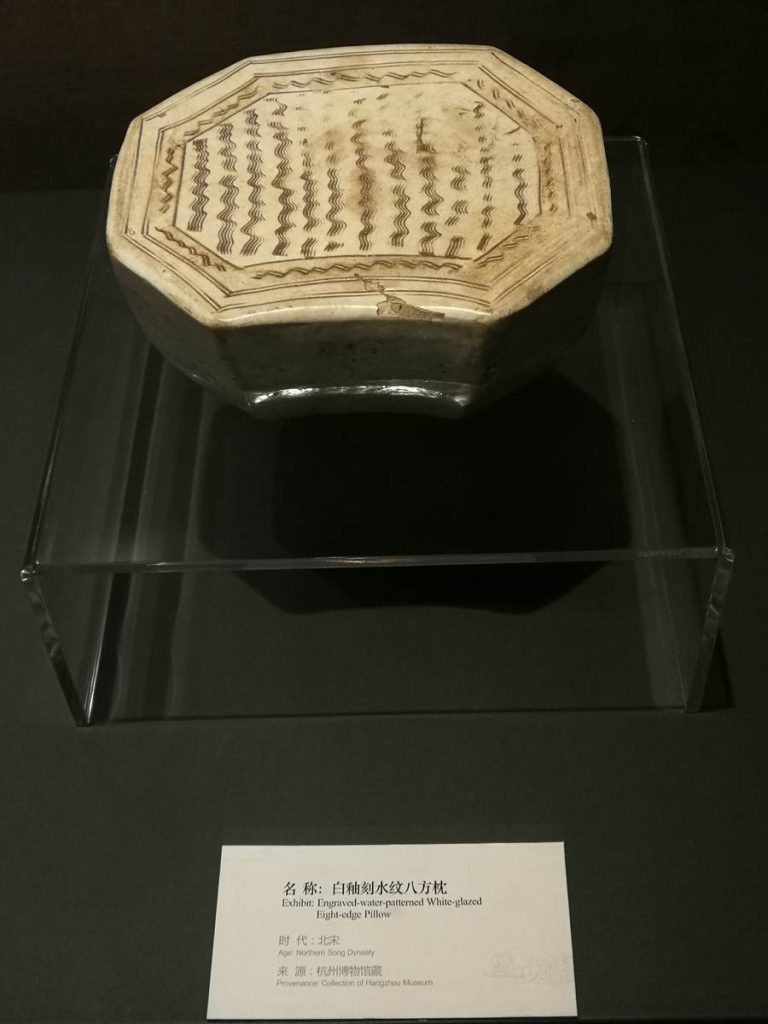 名 称：白釉刻水纹八方枕
Exhibit: Engraved-water-patterned White-glazed
Eight-edge Pillow
时 代：北宋
Age: Northern Song Dynasty
来 源：杭州博物馆藏
Provenance: Collection of Hangzhou Museum